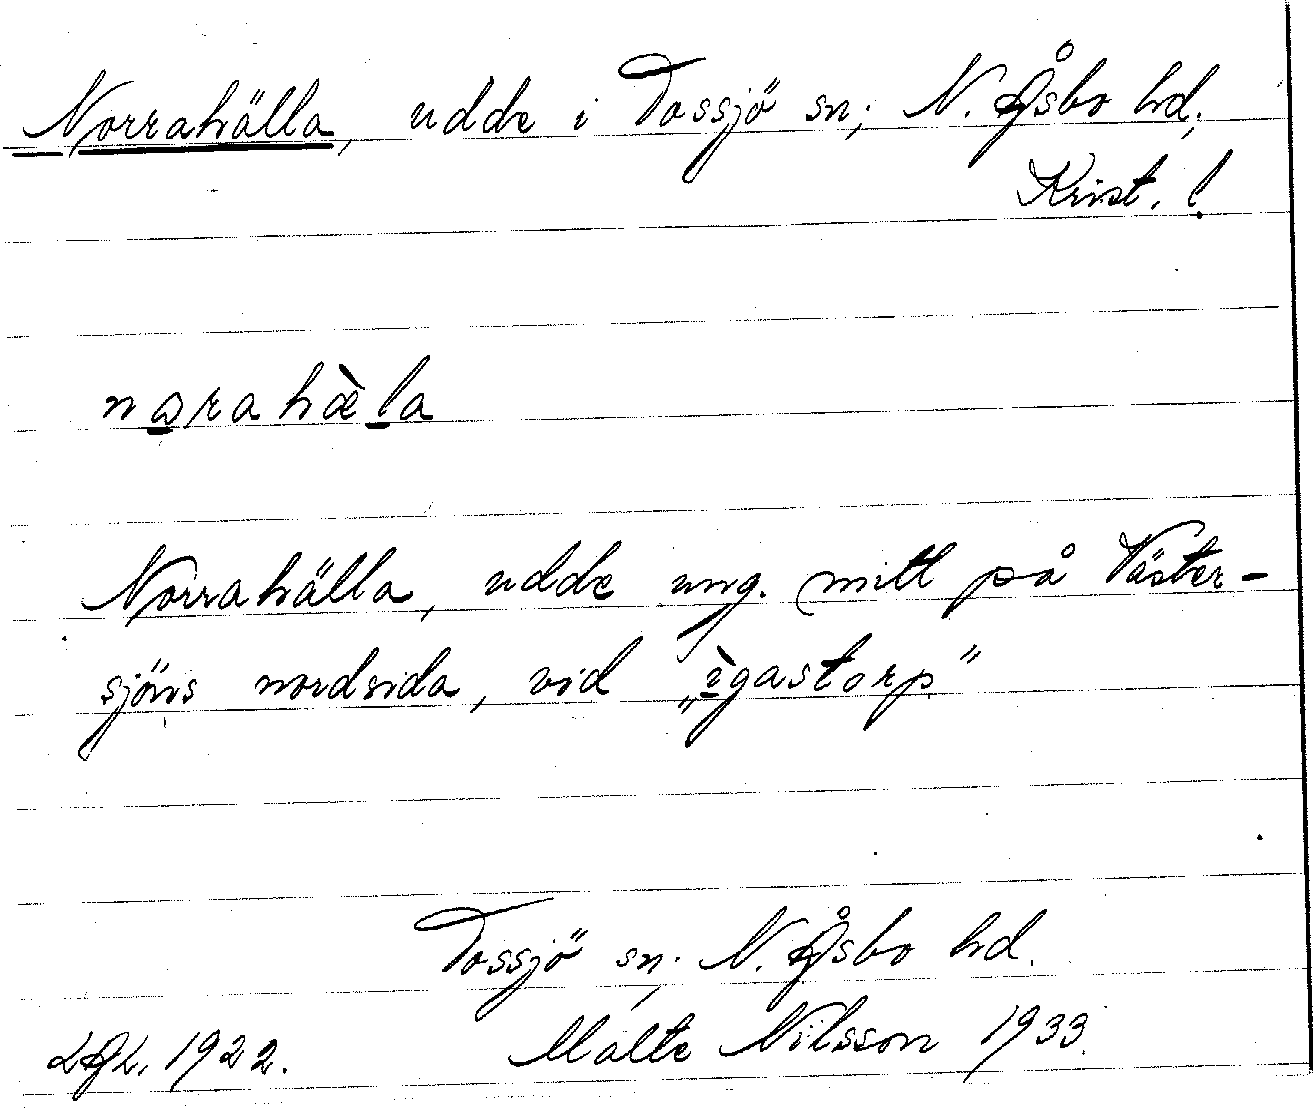 Norrahälla, udde i Tossjö sn; N. Åsbo hd,
Krist. l.
nɷrahæ̀la
Norrahälla, udde ung. mitt på Väster-
sjöns nordsida, vid „ìgastorp”
Tossjö sn; N. Åsbo hd.
Malte Nilsson 1933.
LAL. 1922.